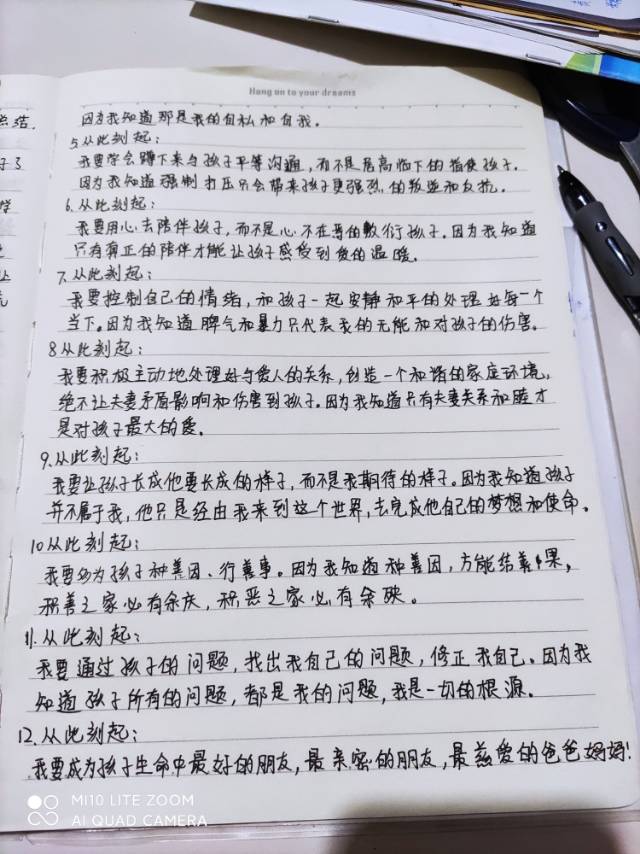 Hang on to your dreams
因为我知道那是我的自私和自我。
5.从此刻起:
我要学会蹲下来与孩子平等沟通,而不是居高临下的指使孩子.
因为我知道强制打压只会带来孩子更强烈的叛逆和反抗。
6.从此刻起:
我要用心去陪伴孩子,而不是心不在焉的敷衍孩子。因为我知道
只有真正的陪伴才能让孩子感受到爱的温暖。
7.从此刻起:
我要控制自己的情绪,和孩子一起安静和平的处理好每一个
当下。因为我知道脾气和暴力只代表我的无能和对孩子的伤害。
8从此刻起:
我要积极主动地处理好与爱人的关系,创造一个和谐的家庭环境,
绝不让夫妻矛盾影响和伤害到孩子。因为我知道只有夫妻关系和睦才
是对孩子最大的爱。
9.从此刻起:
我要让孩子长成他要长成的样子,而不是我期待的样子。因为我知道孩子
并不属于我,他只是经由我来到这个世界,去完成他自己的梦想和使命。
10从此刻起:
我要为孩子种善因、行善事。因为我知道种善因,方能结善果,
积善之家必有余庆,积恶之家必有余殃。
11.从此刻起:
我要通过孩子的问题,找出我自己的问题,修正我自己。因为我
知道孩子所有的问题,都是我的问题,我是一切的根源。
12.从此刻起:
我要成为孩子生命中最好的朋友,最亲密的朋友,最慈爱的爸爸妈妈!
MI10 LITE ZOOM
AI QUAD CAMERA